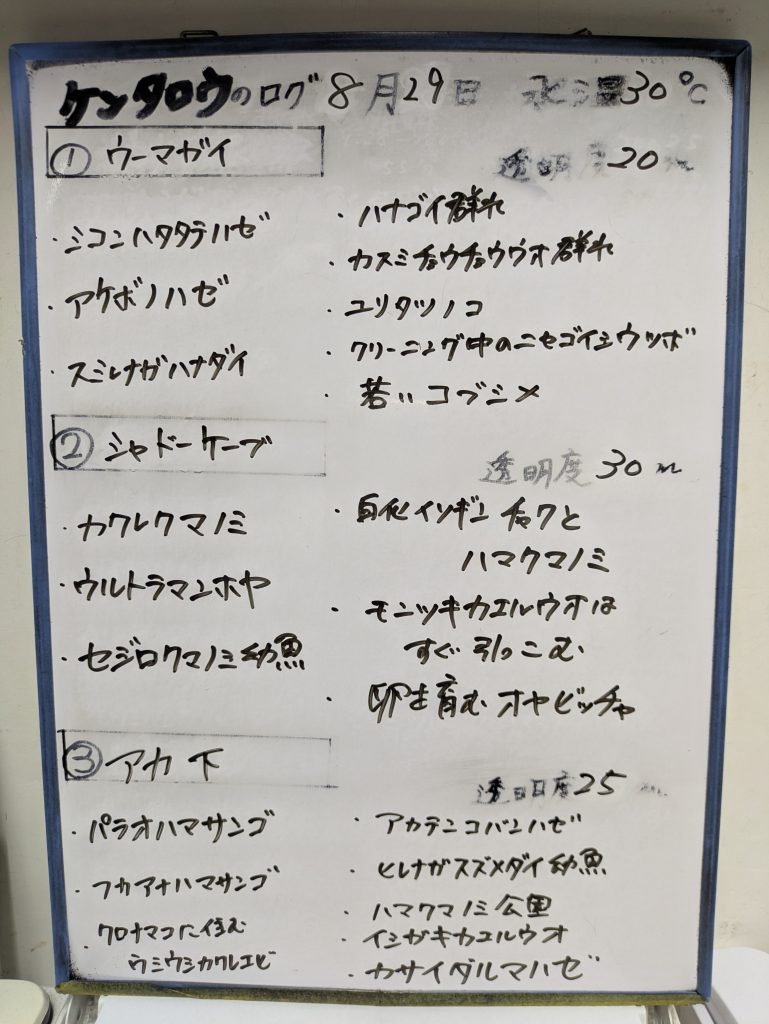 ケンタロウのログ 8月29日 水温30℃
① ウーマガイ
透明度20m
・ミコンハタタテハゼ
・アケボノハゼ
・スミレナガハナダイ
・ハナゴイ群れ
・カスミチョウチョウウオ群れ
・ユリタツノコ
・クリーニング中のニセゴイシウツボ
・若いコブシメ
② シャドーケーブ
透明度30m
・カクレクマノミ
・ウルトラマンホヤ
・セジロクマノミ幼魚
・白化イソギンチャクと
ハマクマノミ
・モンツキカエルウオは
すぐ引っこむ
・卵を育むオヤビッチャ
③ アカ下
透明度25m
・パラオハマサンゴ
・フカアナハマサンゴ
・クロナマコに住む
ウミウシカクレエビ
・アカテンコバンハゼ
・ヒレナガスズメダイ幼魚
・ハマクマノミ公園
・イシガキカエルウオ
・カサイダルマハゼ